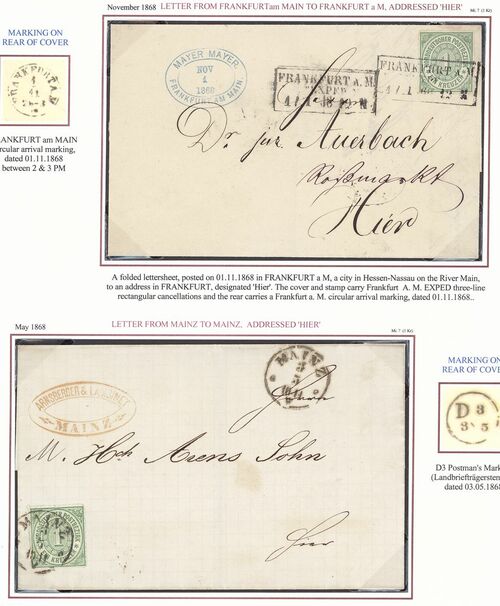 November 1868 LETTER FROM FRANKFURTam MAIN TO FRANKFURT a M, ADDRESSED 'HIER' Mi. 7 (1 Kr)
MARKING ON
REAR OF COVER
MAYER MAYER
NOV
1
1868
FRANKFURT AM MAIN.
FRANKFURT A. M.
EXPED
FRANKFURT A. M.
Dr. jur. Auerbach
Roßmarkt
Hier
ANKFURT am MAIN
rcular arrival marking,
dated 01.11.1868
between 2 & 3 PM
A folded lettersheet, posted on 01.11.1868 in FRANKFURT a M, a city in Hessen-Nassau on the River Main,
to an address in FRANKFURT, designated 'Hier'. The cover and stamp carry Frankfurt A. M. EXPED three-line
rectangular cancellations and the rear carries a Frankfurt a. M. circular arrival marking, dated 01.11.1868..
May 1868 LETTER FROM MAINZ TO MAINZ, ADDRESSED 'HIER' Mi. 7 (1 Kr)
MAINZ
3
5
MAINZ
M. Hch Arens Sohn
hier
1
MARKING ON
REAR OF COVE
D 3
3 5
D3 Postman's Mark
(Landbriefträgerstem
dated 03.05.1868